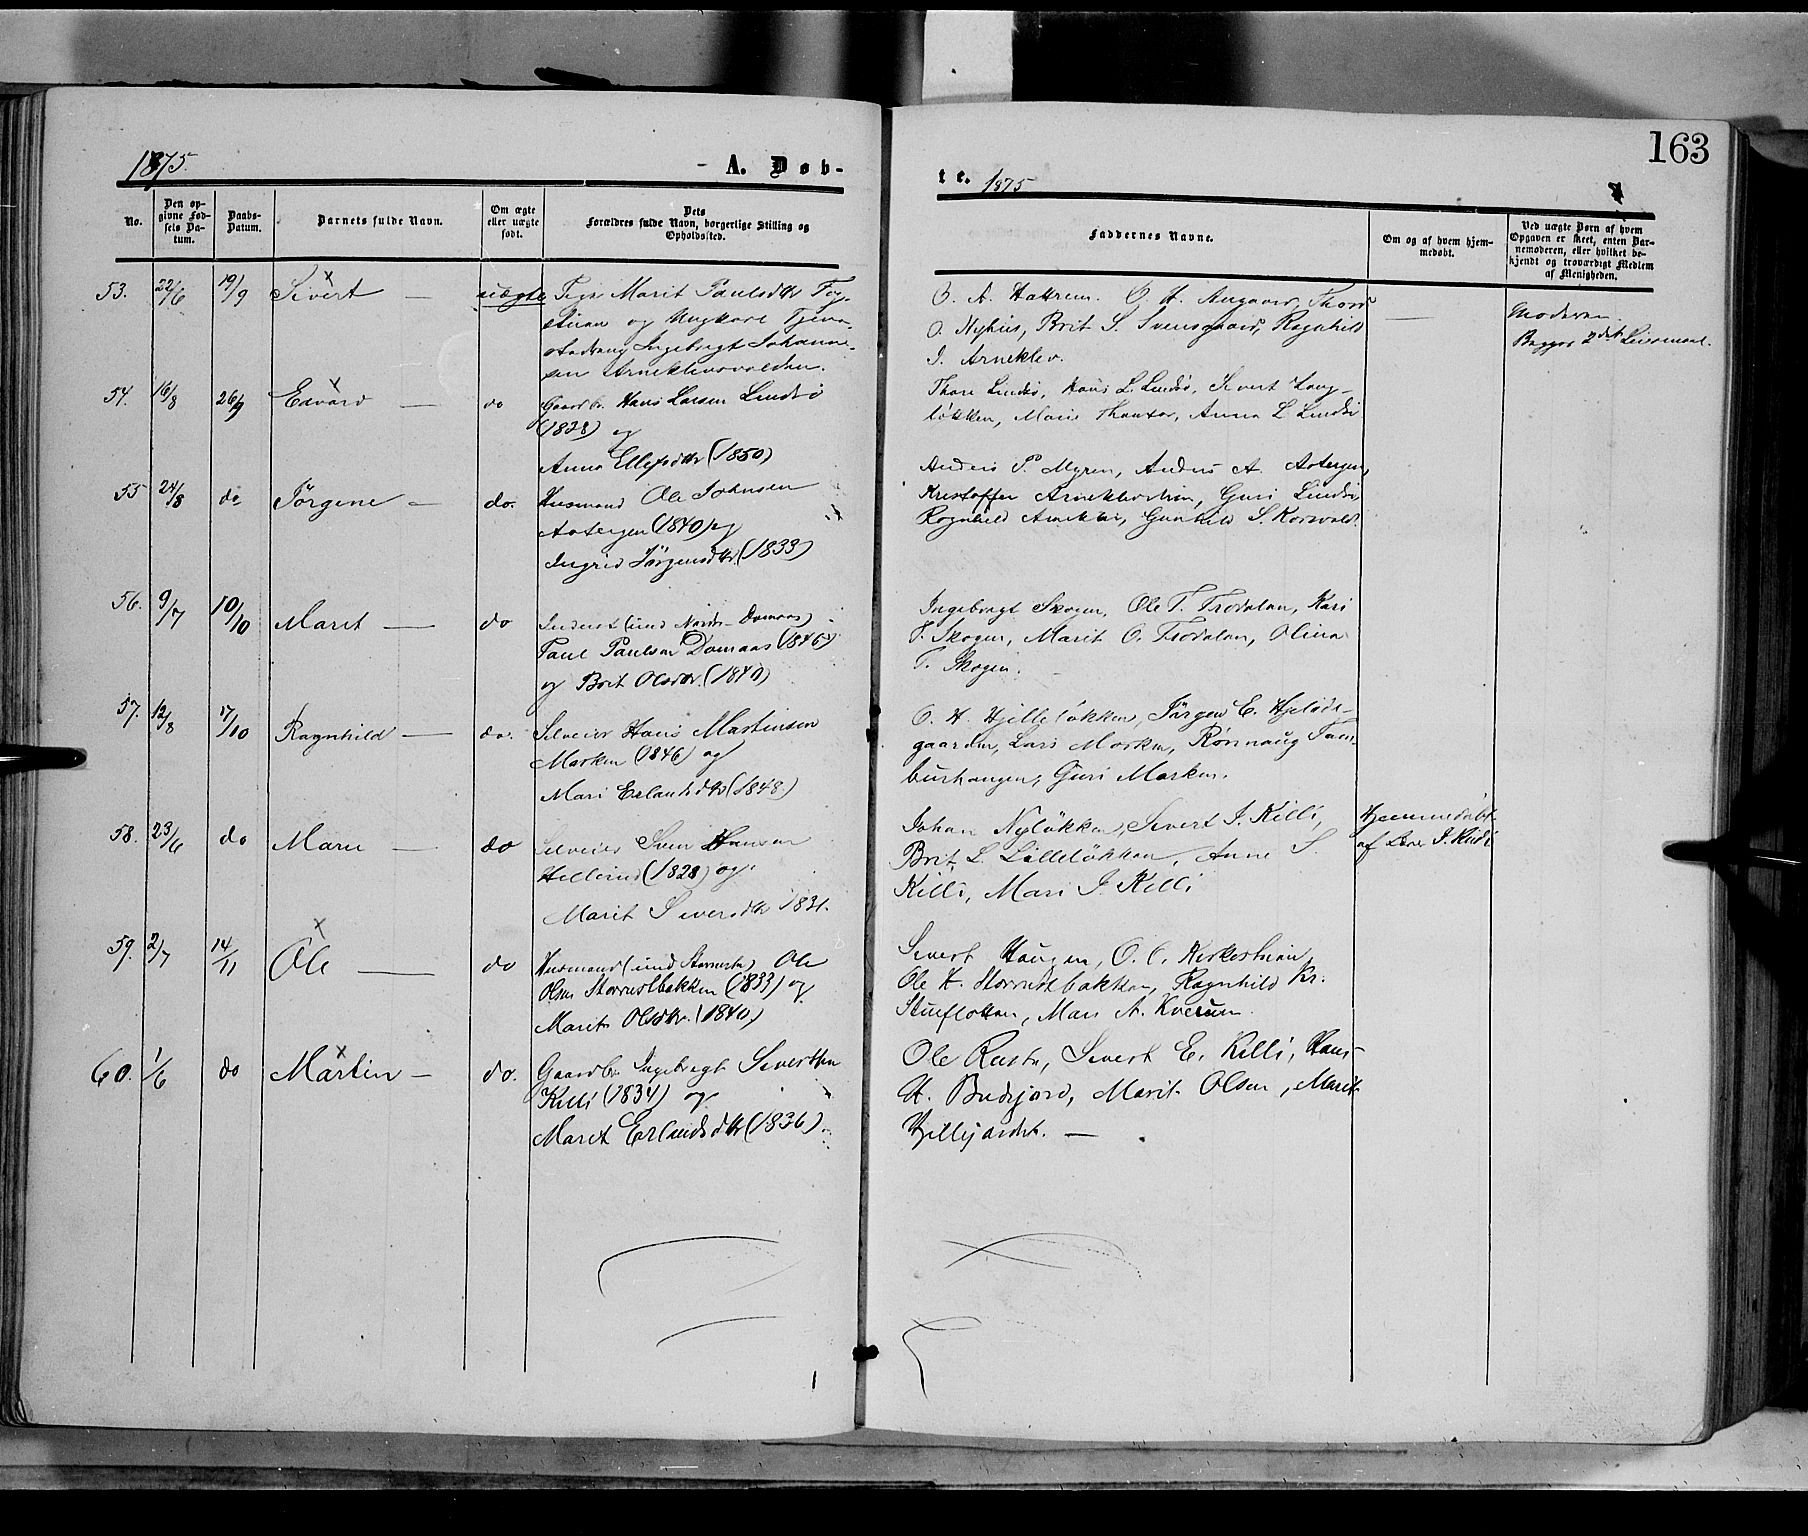 163
1875.
A. Døb-
te. 1875
No.
Den op-
givne Fød-
sels Da-
tum.
Daabs-
Datum.
Barnets fulde Navn.
Om ægte
eller uægte
født.
Dets
Forældres fulde Navn, borgerlige Stilling og
Opholdssted.
Faddernes Navne.
Om og af hvem hjem-
medøbt.
Ved uægte Børn af hvem
Opgaven er skeet, enten Bar-
nemoderen, eller hvilket be-
kjendt og troværdigt Medlem
af Menigheden.
53. 22/6 19/9 Sivert — uægte Pige Marit Paulsdtr
og Ungkarl
Ingebregt Johanne-
sen Arneklevsvolden.
O. A. Hattrem. O. H. Angaard, Thore
O. Nyhus, Brit S. Svensgaard, Ragnhild
I. Arneklev.
—
Moderen.
Begges 2det Leiermaal.
54. 16/8 26/9 Edvard — do Gaardbr. Hans Larsen Lindsø
(1828) og
Anna Ellefsdtr (1850)
Thore Lindsø, Hans L. Lindsø, Sivert Lang-
løkken, Marie Thonter, Anna L. Lindsø
55 24/8 do Jørgine — do. Husmand Ole Johnsen
(1840) og
Ingrid Jørgensdtr. (1833)
Anders P. Myren, Anders A.
Kristoffer Guri Lindsø
Ragnhild Gunhild S.
56. 9/7 10/10 Marit — do Inderst (und Nordr. Domaas)
Paul Paulsen Domaas (1846)
og Brit Olsdtr. (1840)
Ingebregt Skogen, Ole T. Trodalen, Kari
T. Skogen, Marit O. Trodalen, Olina
T. Skogen.
57. 12/8 17/10 Ragnhild — do. Selveier Hans Martinsen
Marken (1846) og
Mari Erlandsdtr (1848.)
O. H. Hjelleløkken, Jørgen E. Hjelds-
gaarden, Lars Marken, Rønnaug Tam-
burhaugen, Guri Marken.
58. 23/6 do Mari — do Selveier Sven Hansen
(1828) og
Marit Siversdtr 1831.
Johan Nyløkken, Sivert I. Killi,
Brit L. Lilleløkken, Anne S.
Killi, Mari I. Killi
Hjemmedøbt
af
59. 2/7 14/11 Ole — do Husmand (und Storrusta) Ole
Olsen Storrustbakken (1833) og
Marit Olsdtr. (1840)
Sivert Haugen, O. C. Kirkestuen
Ole H. Storrustbakken, Ragnhild Kr.
Stueflotten, Mari A. Kverum.
60. 1/6 do Martin — do. Gaardbr Ingebregt Sivertsen
Killi (1834) og
Marit Erlandsdtr (1836)
Ole Rusta, Sivert E. Killi, Hans
H. Budsjord, Marit Olsen, Marit
Hjellejordet. —